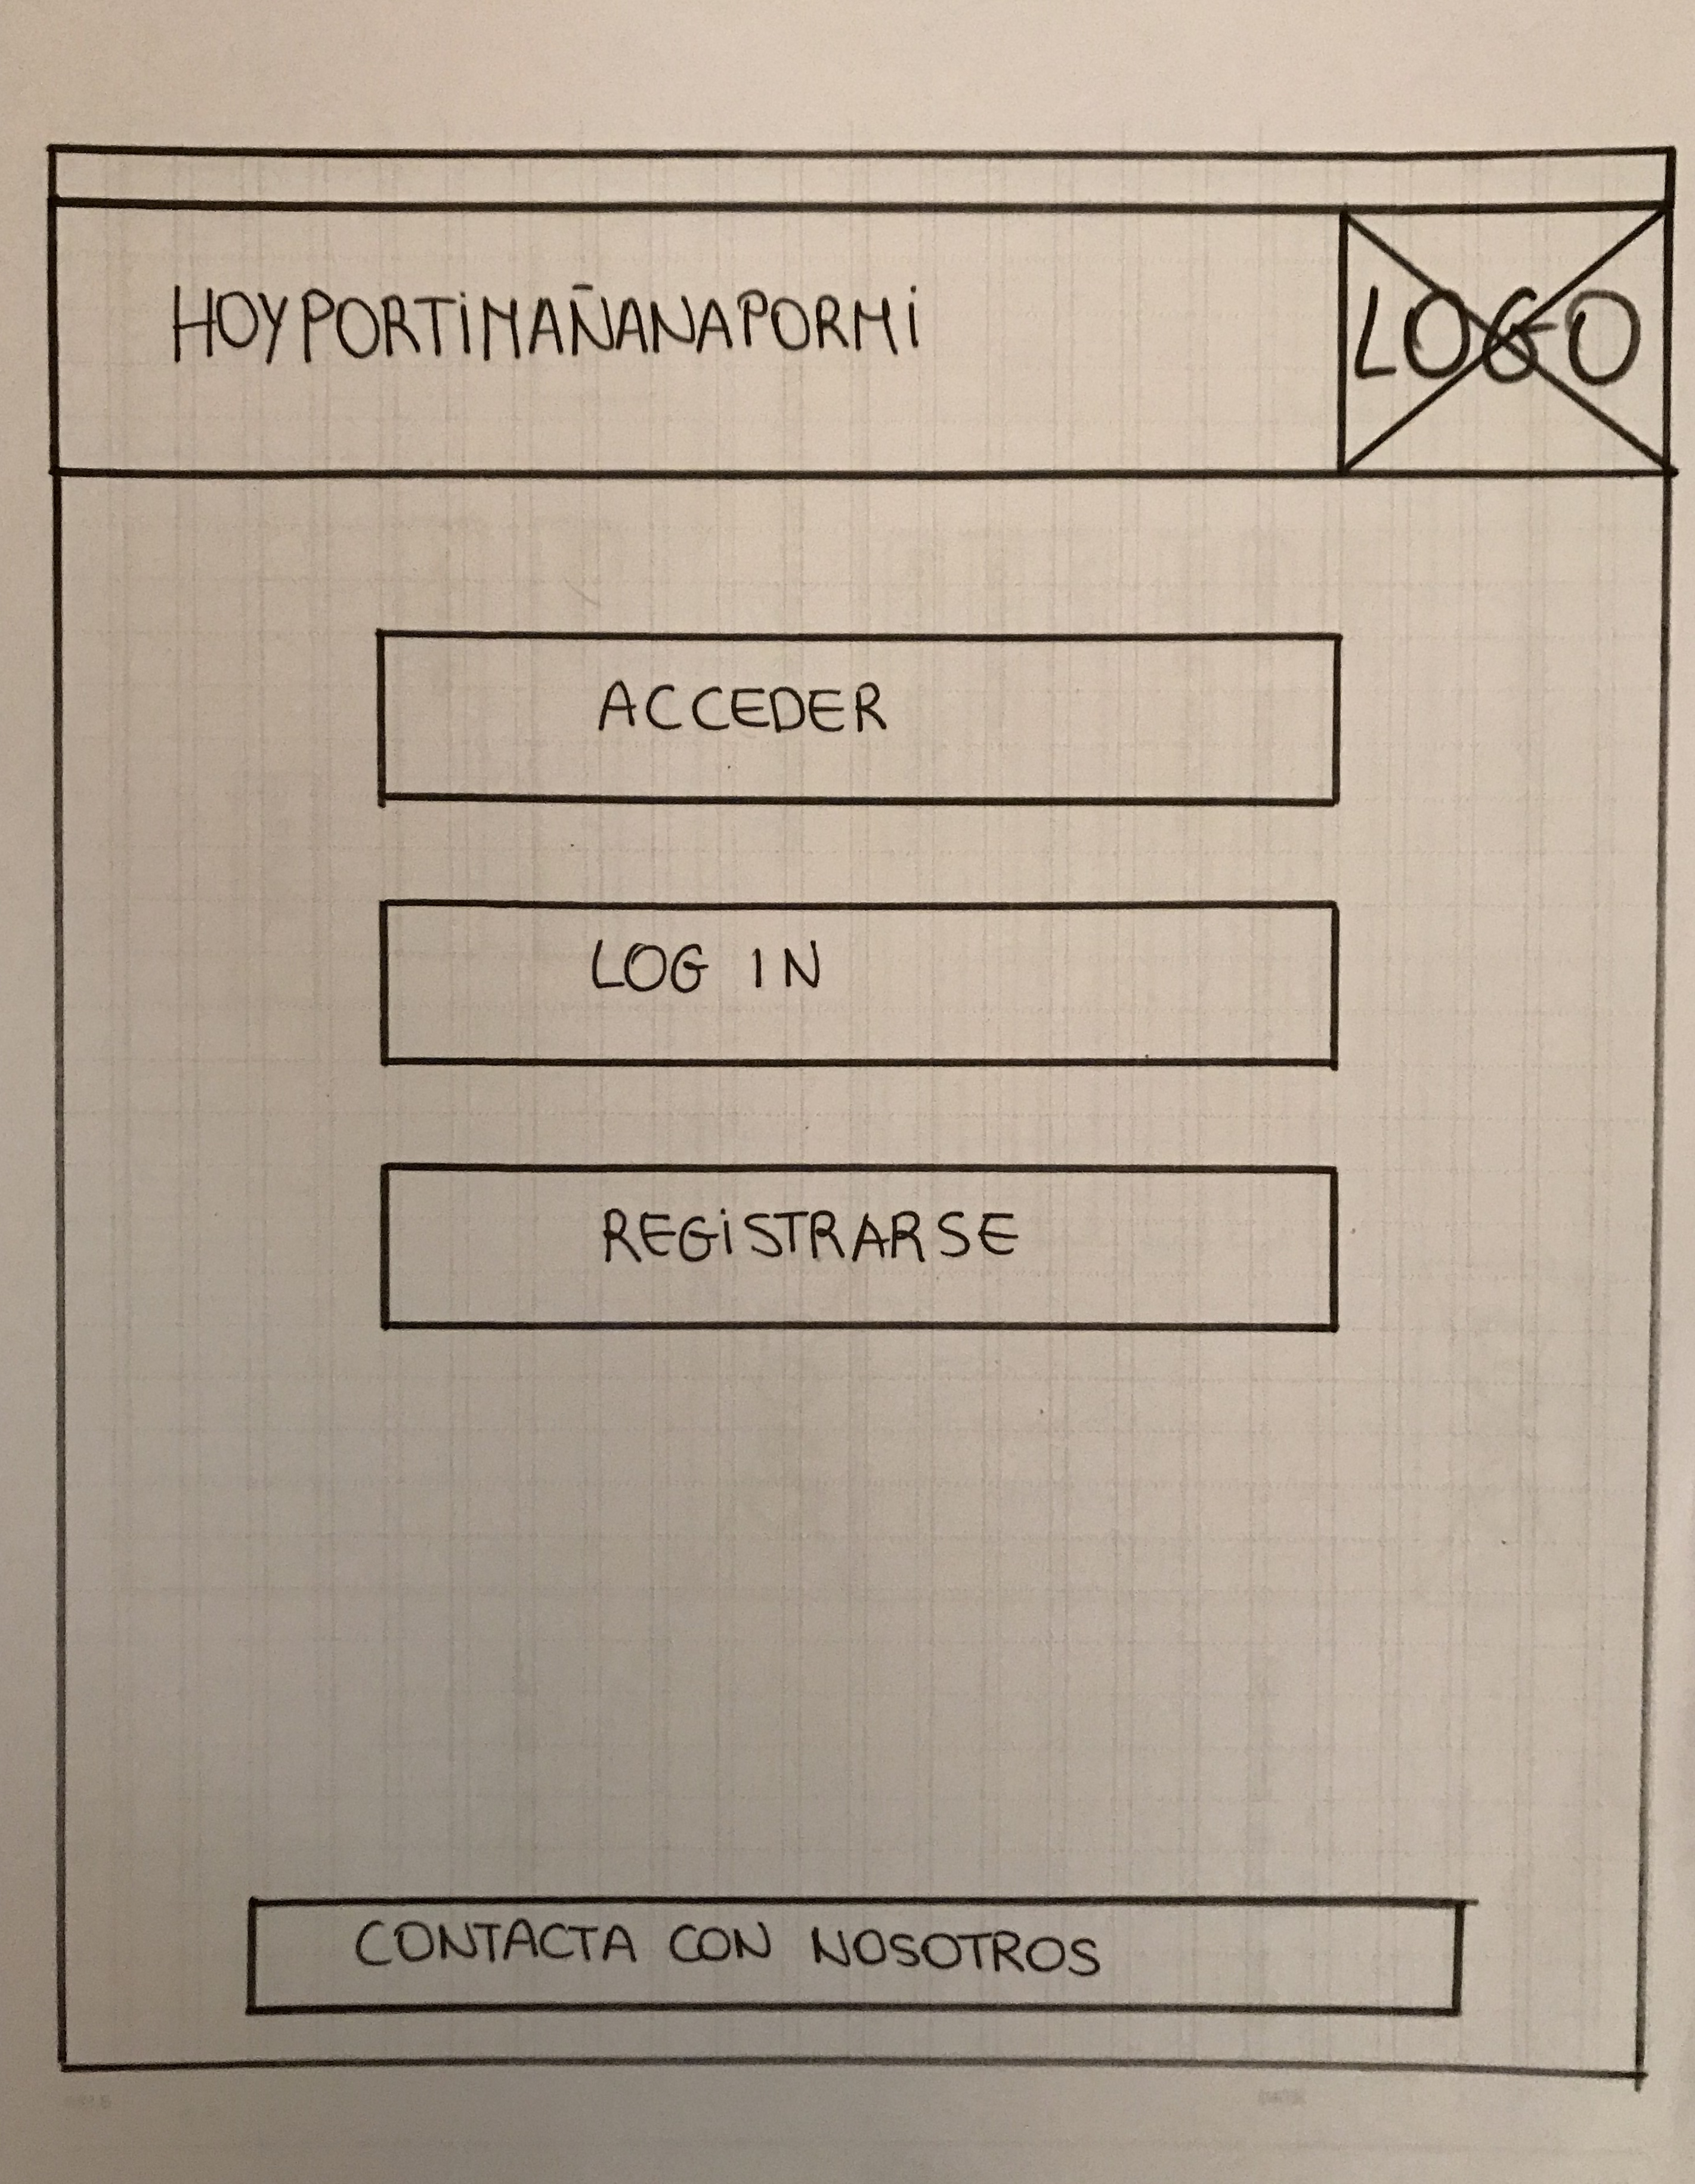 HOYPORTIMAÑANAPORMI
LOGO
ACCEDER
LOG IN
REGISTRARSE
CONTACTA CON NOSOTROS